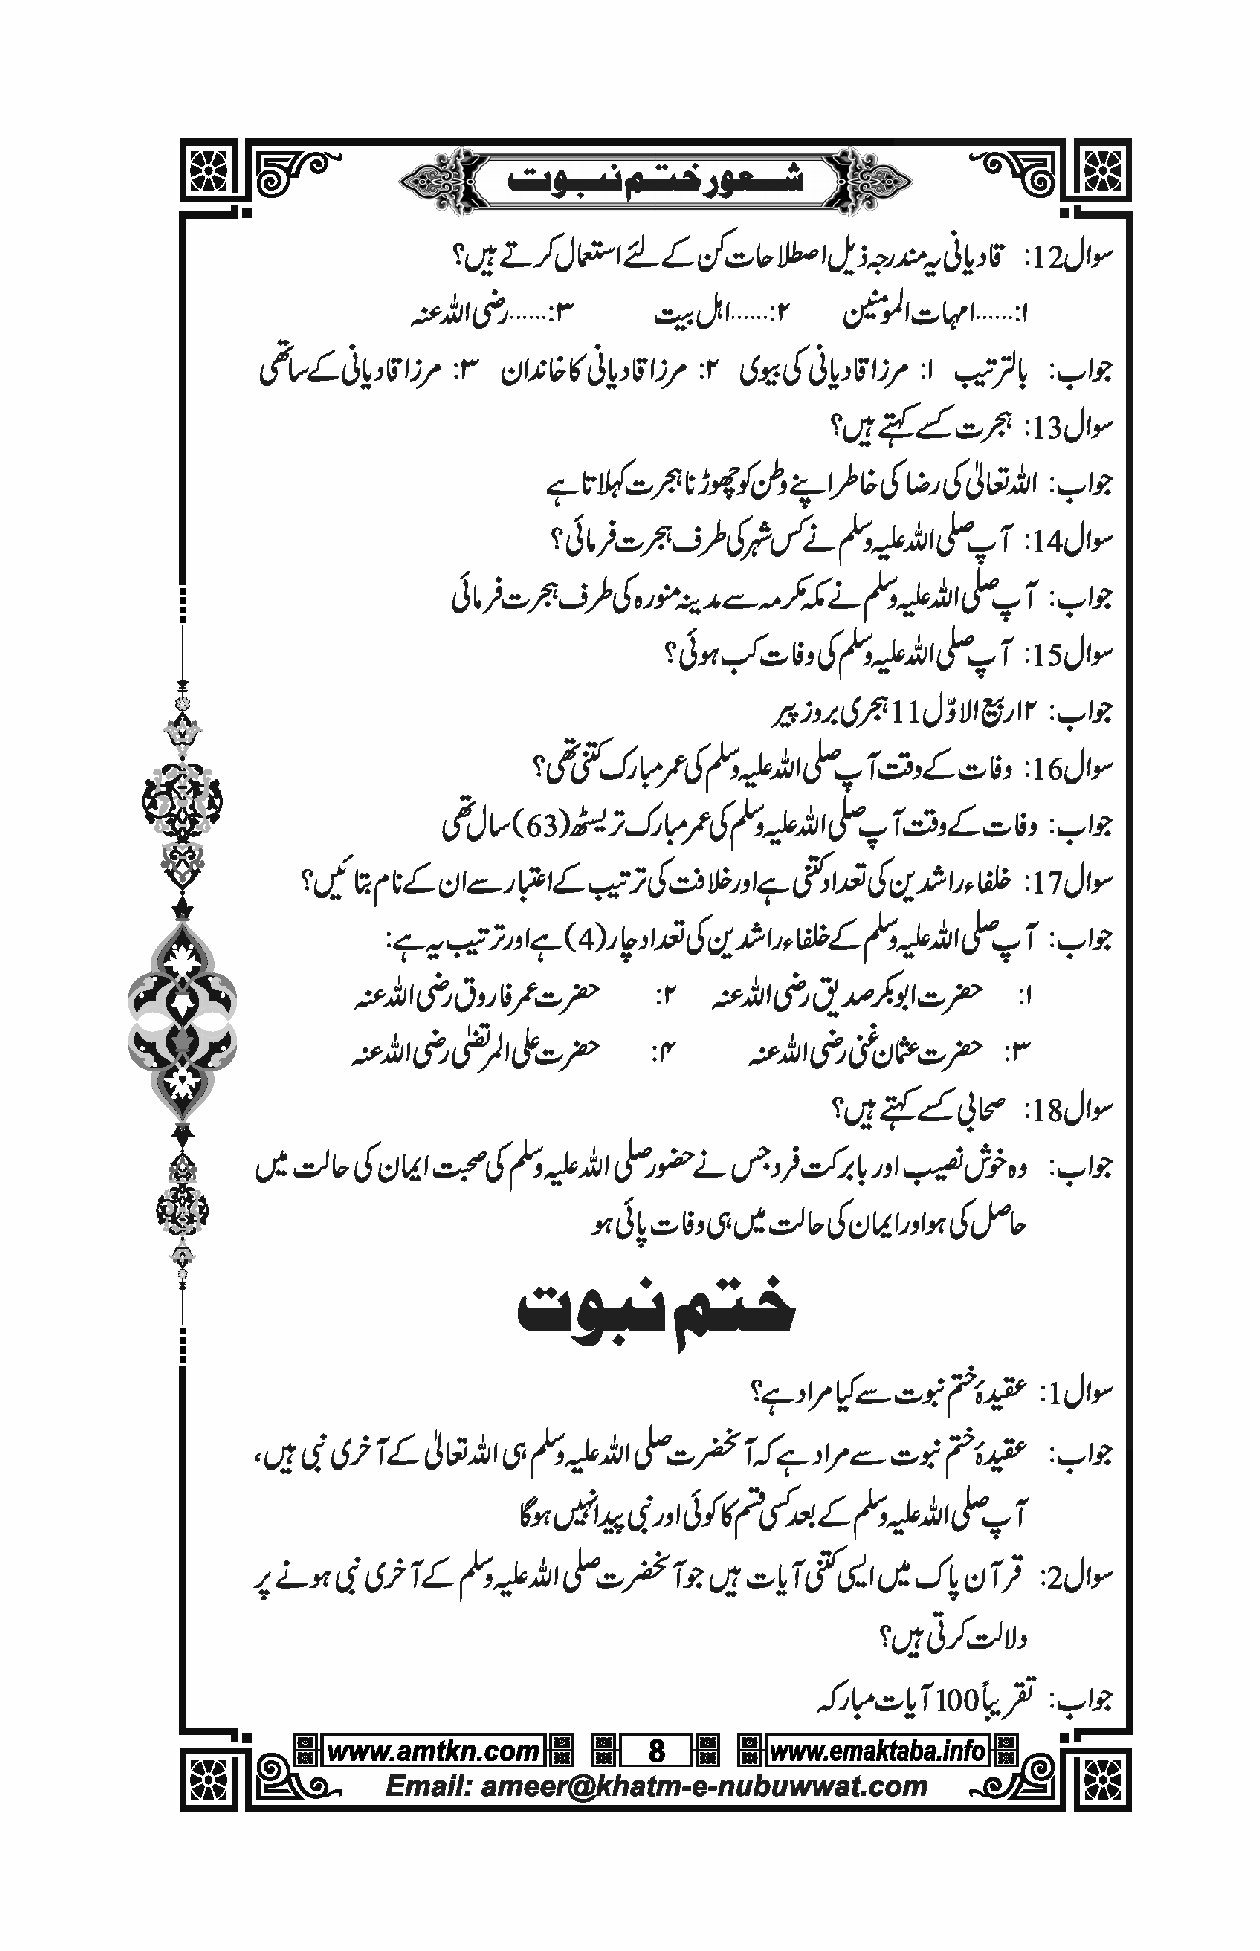 شعور ختم نبوت
سوال12: قادیانی یہ مندرجہ ذیل اصطلاحات کن کے لئے استعمال کرتے ہیں؟
۱:......امہات المومنین ۲:......اہل بیت ۳:......رضی اللہ عنہ
جواب: بالترتیب ۱: مرزا قادیانی کی بیوی ۲: مرزا قادیانی کا خاندان ۳: مرزا قادیانی کے ساتھی
سوال13: ہجرت کسے کہتے ہیں؟
جواب: اللہ تعالیٰ کی رضا کی خاطر اپنے وطن کو چھوڑنا ہجرت کہلاتا ہے
سوال14: آپ صلی اللہ علیہ وسلم نے کس شہر کی طرف ہجرت فرمائی؟
جواب: آپ صلی اللہ علیہ وسلم نے مکہ مکرمہ سے مدینہ منورہ کی طرف ہجرت فرمائی
سوال15: آپ صلی اللہ علیہ وسلم کی وفات کب ہوئی؟
جواب: ۱۲ ربیع الاوّل 11 ہجری بروز پیر
سوال16: وفات کے وقت آپ صلی اللہ علیہ وسلم کی عمر مبارک کتنی تھی؟
جواب: وفات کے وقت آپ صلی اللہ علیہ وسلم کی عمر مبارک تریسٹھ (63) سال تھی
سوال17: خلفاء راشدین کی تعداد کتنی ہے اور خلافت کی ترتیب کے اعتبار سے ان کے نام بتائیں؟
جواب: آپ صلی اللہ علیہ وسلم کے خلفاء راشدین کی تعداد چار (4) ہے اور ترتیب یہ ہے:
۱: حضرت ابوبکر صدیق رضی اللہ عنہ ۲: حضرت عمر فاروق رضی اللہ عنہ
۳: حضرت عثمان غنی رضی اللہ عنہ ۴: حضرت علی المرتضٰی رضی اللہ عنہ
سوال18: صحابی کسے کہتے ہیں؟
جواب: وہ خوش نصیب اور بابرکت فرد جس نے حضور صلی اللہ علیہ وسلم کی صحبت ایمان کی حالت میں
حاصل کی ہو اور ایمان کی حالت میں ہی وفات پائی ہو
ختم نبوت
سوال1: عقیدۂ ختم نبوت سے کیا مراد ہے؟
جواب: عقیدۂ ختم نبوت سے مراد ہے کہ آنحضرت صلی اللہ علیہ وسلم ہی اللہ تعالیٰ کے آخری نبی ہیں،
آپ صلی اللہ علیہ وسلم کے بعد کسی قسم کا کوئی اور نبی پیدا نہیں ہوگا
سوال2: قرآن پاک میں ایسی کتنی آیات ہیں جو آنحضرت صلی اللہ علیہ وسلم کے آخری نبی ہونے پر
دلالت کرتی ہیں؟
جواب: تقریباً 100 آیات مبارکہ
www.amtkn.com 8 www.emaktaba.info
Email: ameer@khatm-e-nubuwwat.com